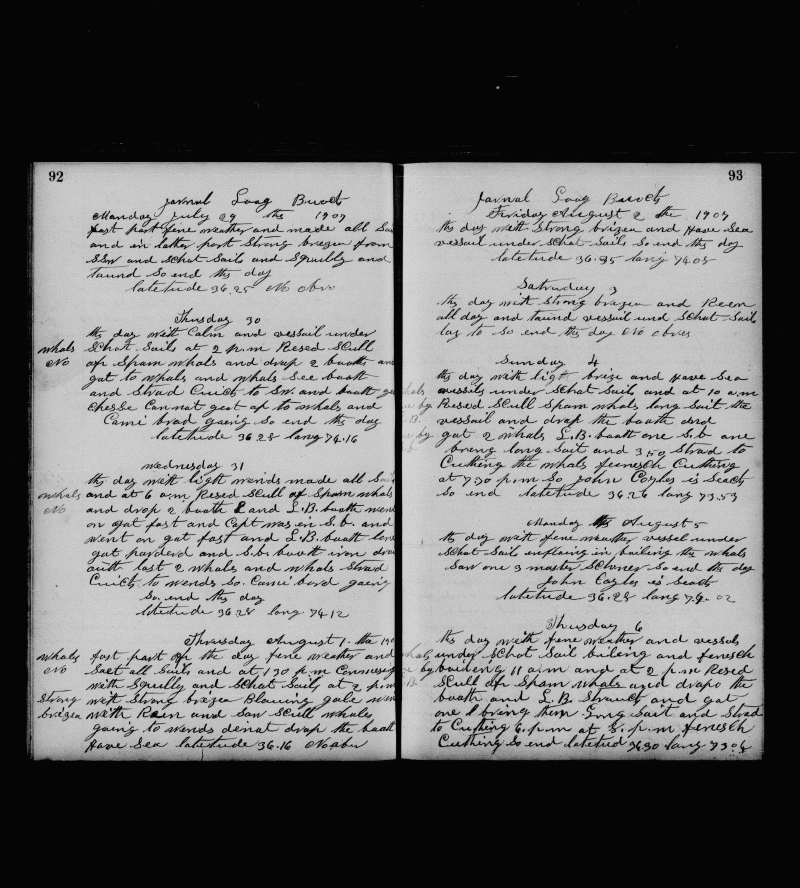 92
Jornal Loag Buoch
Monday July 29 ths 1907
fost part fene weather and made all Sai
and in latter part Strong brizea from
SSW and schat Sails and Squilly and
taund So end ths day
latetude 36.25 No obw
Thusday 30
ths day with Calm and vessail under
Schat Sails at 2 p.m Resed Scull
of Spam whals and drap 2 boath and
gat to whals and whals See boath
and Strad Cuicth to Sw. and boath
Chesse Can nat geat up to whals and
Cami brad gaeing So end the day
latetude 36.28 lang 74.16
whals
No
wednesday 31
ths day with light wends made all Sai
and at 6 a.m Resed Scull of Spam whals
and drop 2 boath and L.B. boath wen
on gat fast and Capt was en S.b. and
went on gat fast and L.B. boath
gat parderd and S.b. boath iron
auth last 2 whals and whals Strad
Cuicth to wends So Cami bord gaeing
So end the day
latetude 36.28 lang 74.12
whals
No
Thursday August 1. the 190
fost part of the day fene weather and
Saet all Sails and at 1 30 p.m
with Squilly and Schat Sails at 2 p.m
with Strong brizea Blowing gale
with Raen and saw Scull whales
going to wends denat drap the baath
Have Sea latetude 36.16 No
whals
No
Strong
brizea
93
Jarnal Loag Buoch
Friday August 2 the 1907
ths day with Strong brizea and Have Sea
vessail under schat Sails So end ths day
latetude 36.25 lang 74.05
Satruday 3
ths day with Strong brizea and Reen
all day and taund vessail und Schat Sails
lay to So end the day No obres
Sunday 4
ths day with ligth brize and Have Sea
vessils under Schat Sails and at 10 a.m
Resed Scull Spam whals long Sait the
vessail and drap the boath and
gat 2 whals L.B. boath one S.b one
breng long Sait and 3,50 Strad to
Cuthing the whals feenesch Cuthing
at 7 30 p.m So John Coyles is Seack
So end latetude 36.26 lang 73.53
Monday August 5
ths day with fene weather vessel under
Schat Sail in bailing the whals
Saw one 3 master So end the day
John Coyles is Seack
latetude 36.28 lang 74.02
Thusday 6
ths day with fene weather and vessels
under Schat Sail builing and fenesch
builing 11 a.m and at 2 p.m Resed
Scull of Spam whals and drapo the
boath and L.B. Strauck and gat
one breng them Long Sait and Strad
to Cuthing 6. p.m at 8. p.m fenesch
Cuthing So end latetud 36.30 lang 73 08